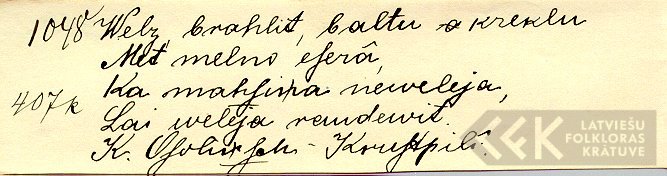 1048 Welz, brahlit, baltu kreklu
Met melno eserâ,
407k Ka mahsiņa neweleja,
Lai weleja raudewit.
K. Osoliņsch - Krustpilî.
LATVIEŠU
FOLKLORAS
KRĀTUVE